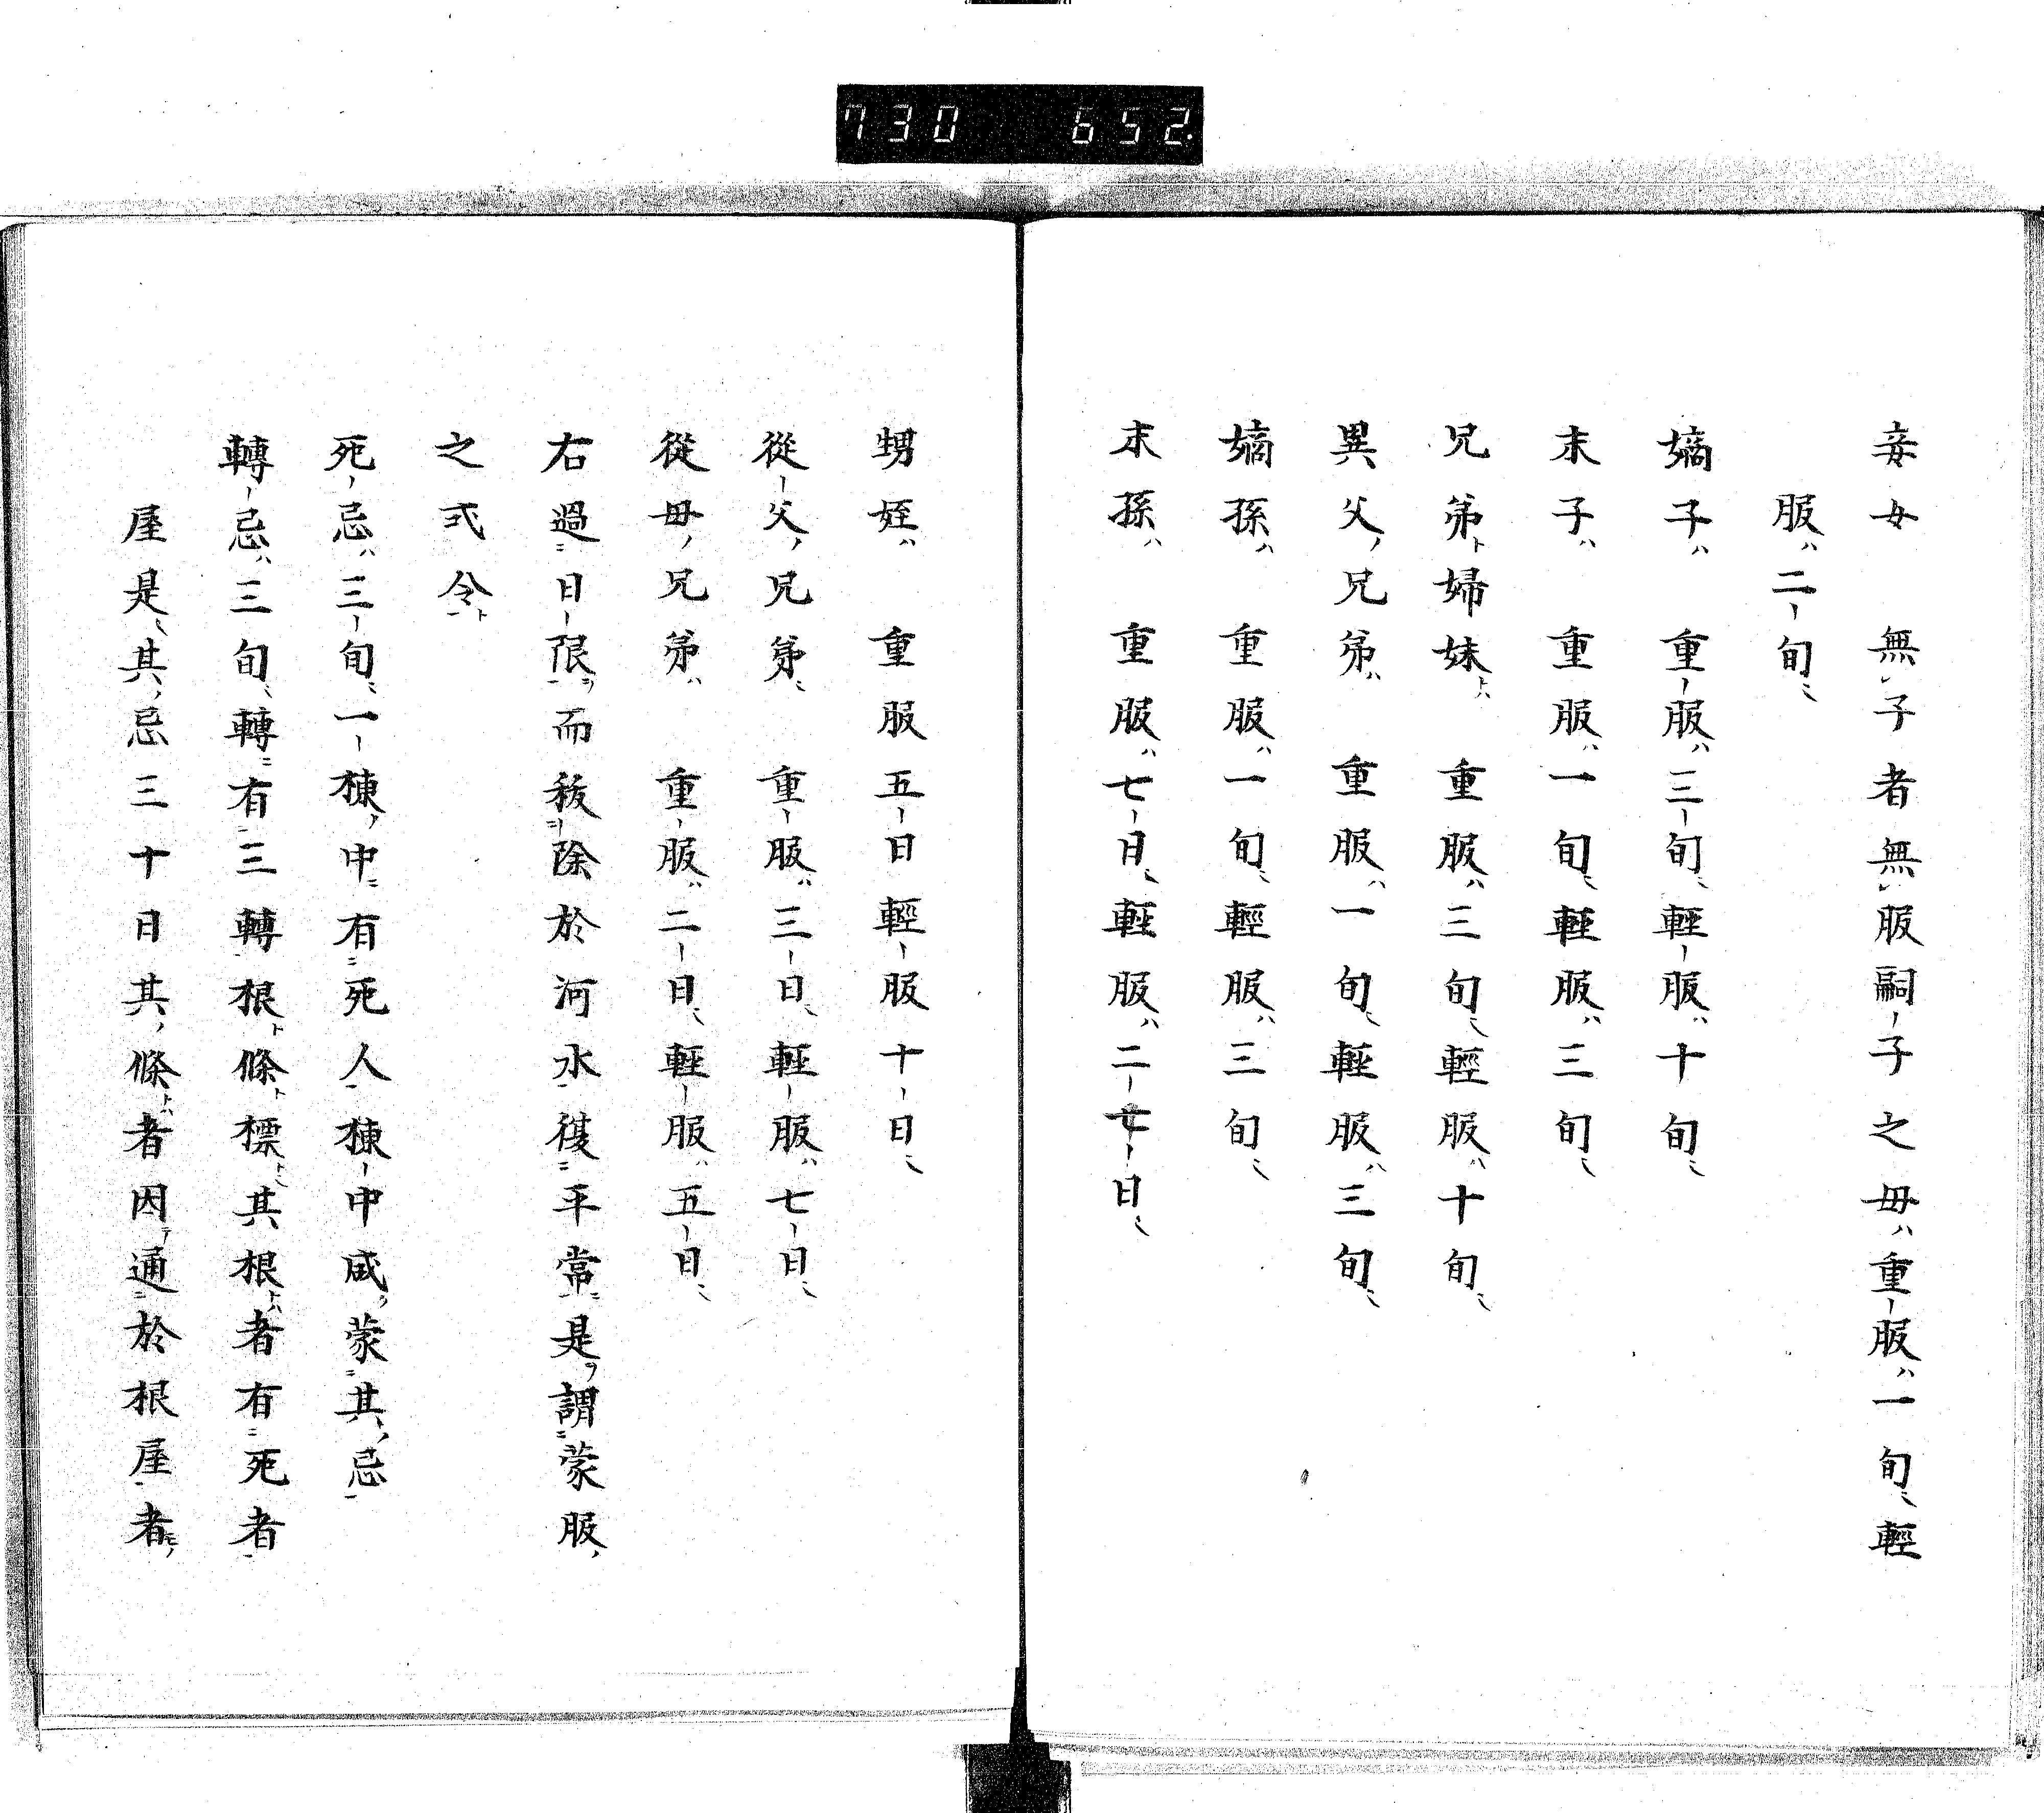 730 652
妾女 無子者無服嗣子之母ハ重服ハ一旬ニ輕
服ハ二旬ニ
嫡子ハ 重服ハ三旬ニ輕服ハ十旬ニ
末子ハ 重服ハ一旬ニ輕服ハ三旬ニ
兄弟ト婦妹トハ 重服ハ三旬ニ輕服ハ十旬ニ
異父ノ兄弟ハ 重服ハ一旬ニ輕服ハ三旬ニ
嫡孫ハ 重服ハ一旬ニ輕服ハ三旬ニ
末孫ハ 重服ハ七日ニ輕服ハ二七日ニ
甥姪ハ 重服五日輕服十日ニ
從父ノ兄弟ニ 重服ハ三日ニ輕服ハ七日ニ
從母ノ兄弟ハ 重服ハ二日ニ輕服ハ五日ニ
右過二日限一ヲ而秡二除於河水一復二平常一ニ是ヲ謂二蒙服ノ
之式令一ト
死ノ忌ハ三旬ニ一棟ノ中ニ有二死人一棟中咸ク蒙二其ノ忌一
轉忌ハ三旬ニ轉ニ有二三轉一根ト條ト標トニ其根トハ者有二死者一
屋是ニ其ノ忌三十日其ノ條トハ者因テ通二於根屋一者モノ